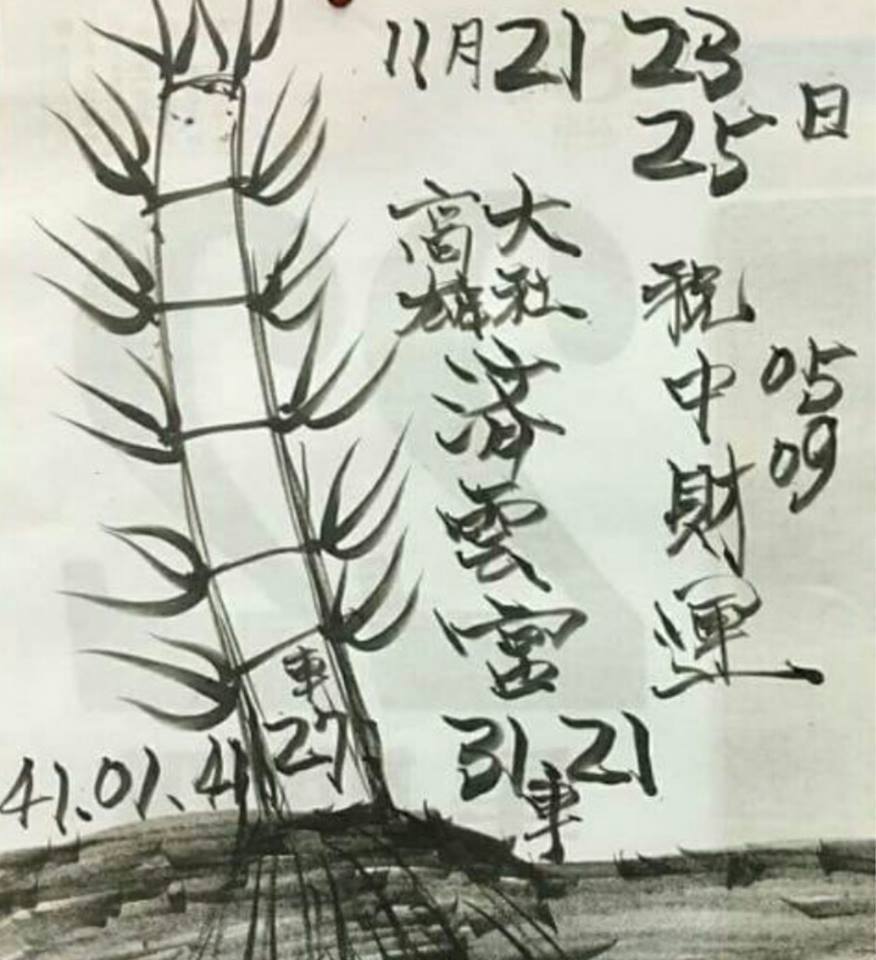 11月21 23
25日
高雄
大社
濟雲宮
稅中財運
05
09
車
27
41.01.41
31.21
車